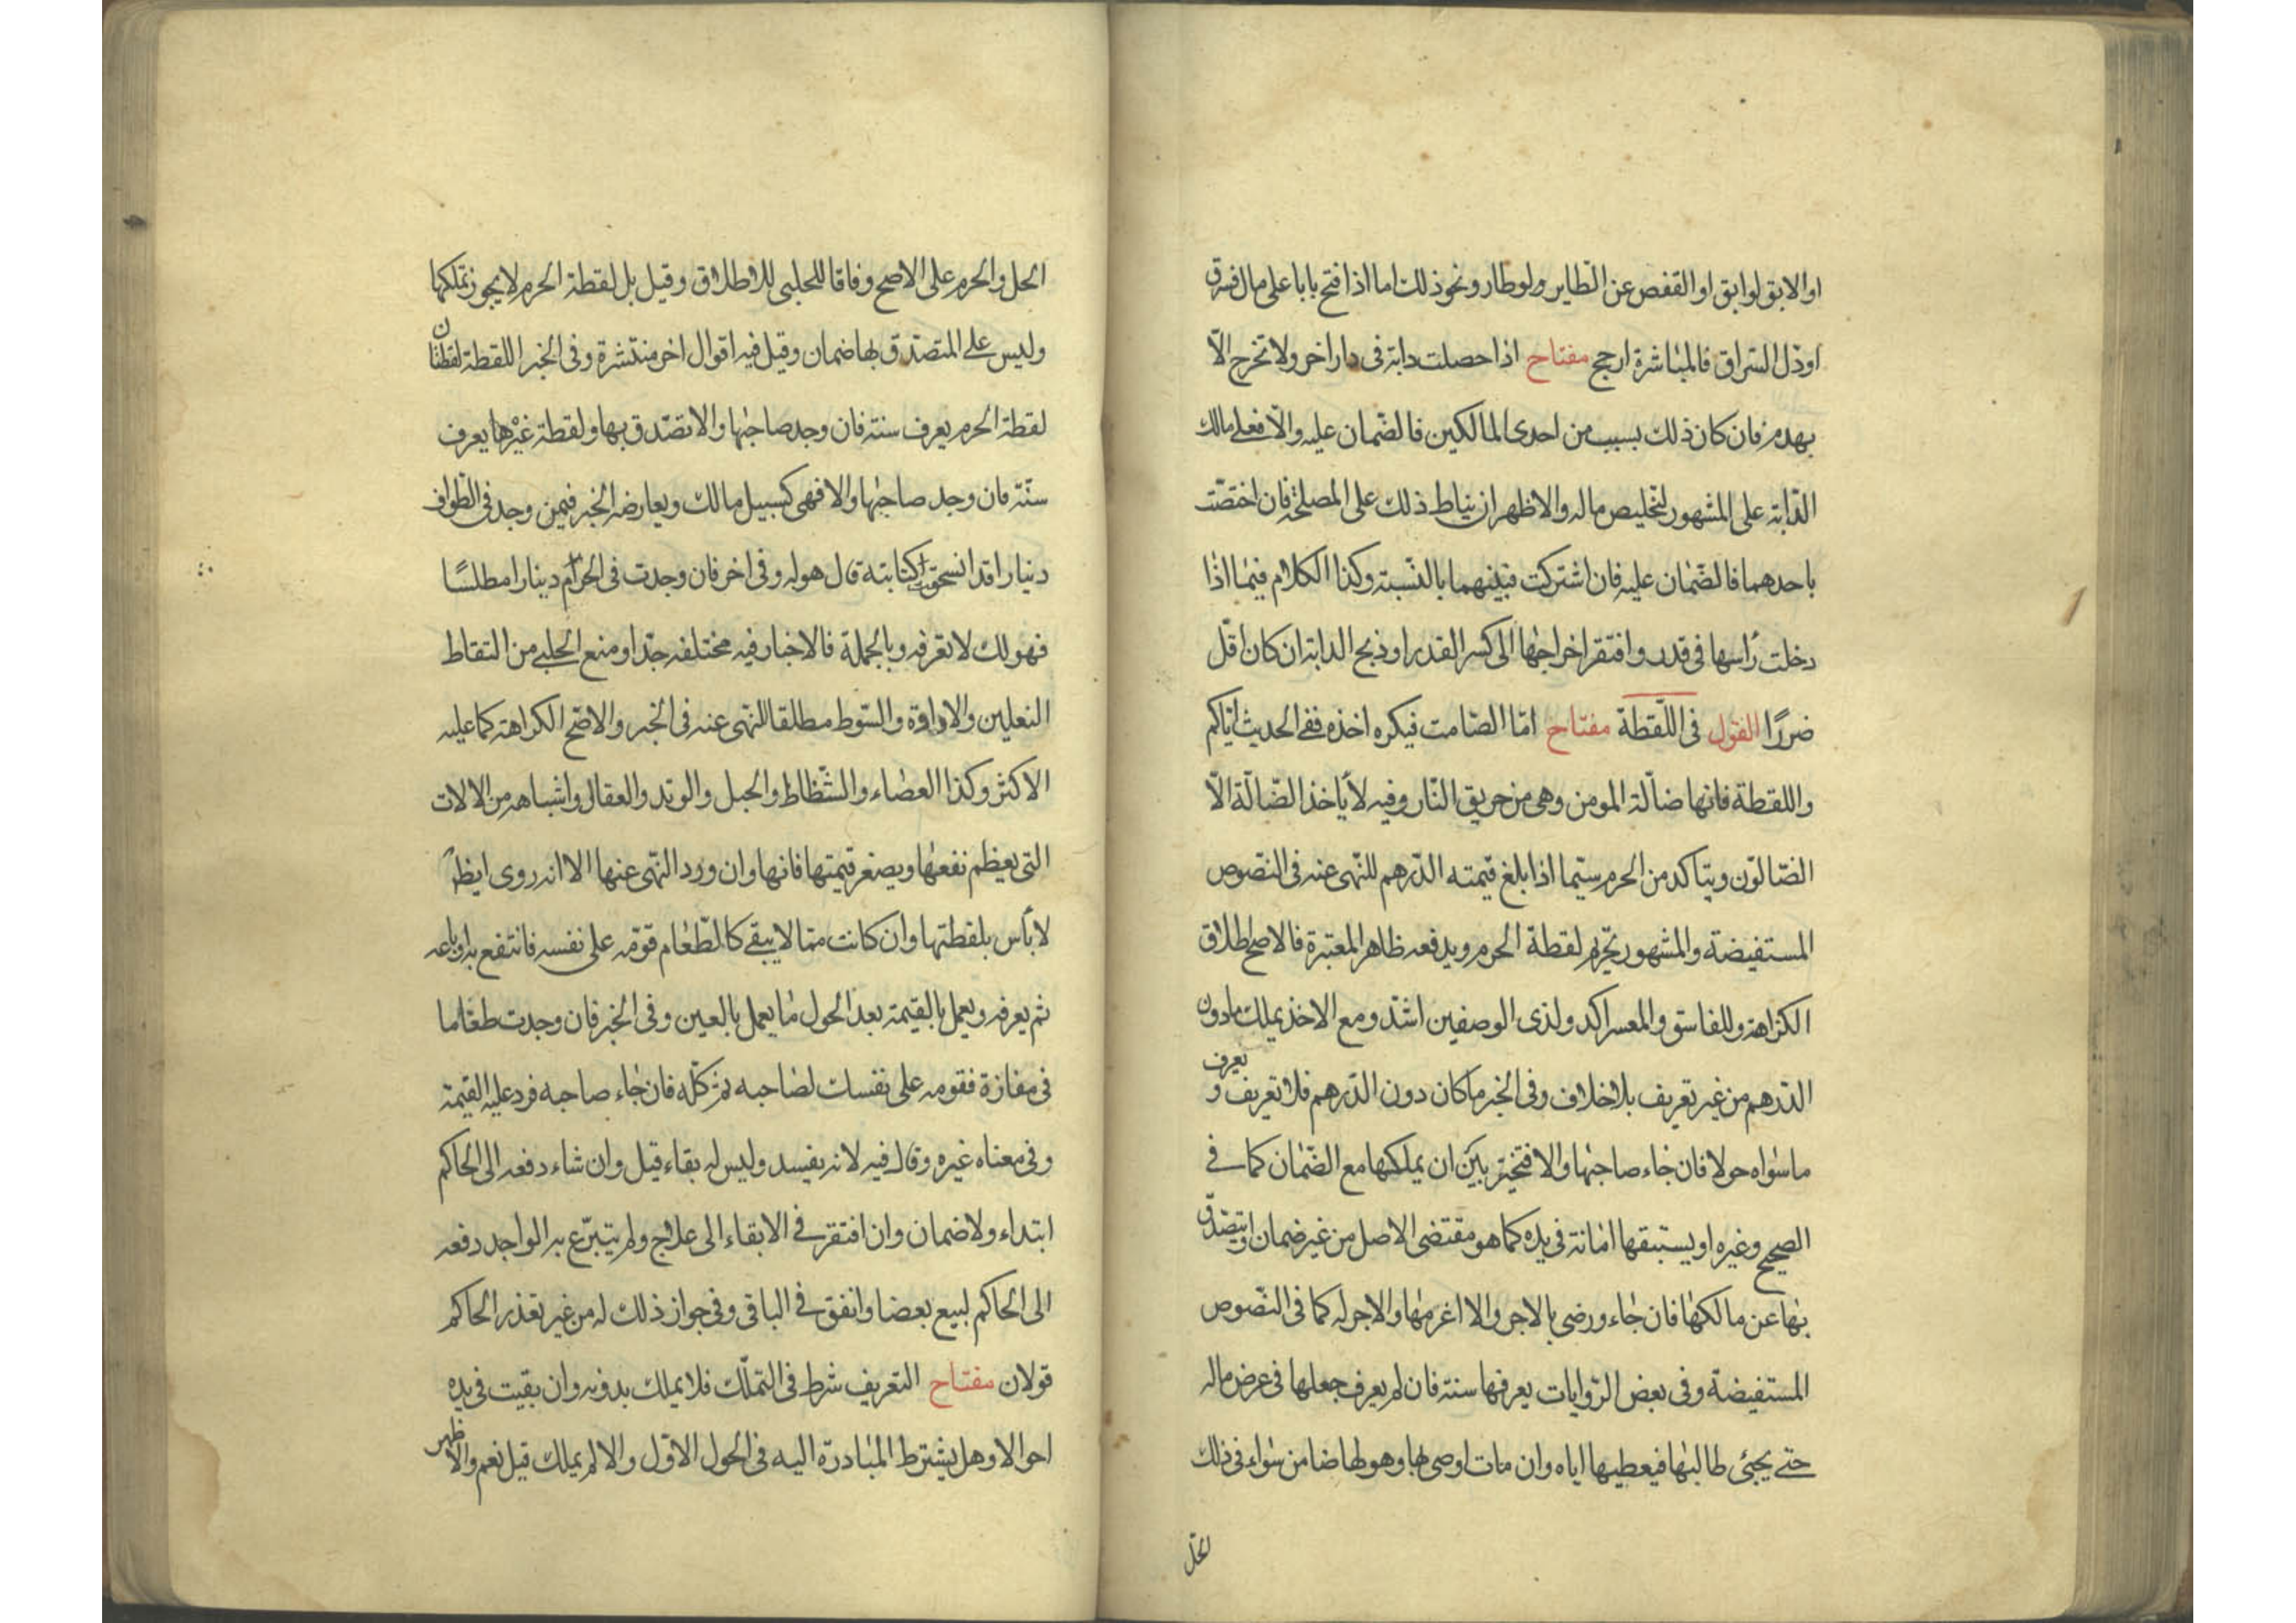 او الابق لوابق او القفص عن الطاير ولو طار ونحو ذلك اما اذا فتح بابا على مال فسرق
او دل السراق فالمباشرة ارجح مفتاح اذا حصلت دابة فى دار اخر ولا تخرج الّا
بهدم فان كان ذلك بسبب من احدى المالكين فالضمان عليه والّا فعلى مالك
الدّابة على المشهور لتخليص ماله والاظهر ان يناط ذلك على المصلحة فان اختصّت
باحدهما فالضّمان عليه فان اشتركت فبينهما بالنّسبة وكذا الكلام فيما اذا
دخلت رأسها فى قدر وافتقر اخراجها الى كسر القدر او ذبح الدابة ان كان اقلّ
ضررًا القول فى اللّقطة مفتاح امّا الصّامت فيكره اخذه ففى الحديث ايّاكم
واللقطة فانها ضالّة المومن وهى من حريق النّار وفيه لا ياخذ الضّالّة الّا
الضّالّون ويتاكد من الحرم سيّما اذا بلغ قيمته الدّرهم للنّهى عنه فى النّصوص
المستفيضة والمشهور تحريم لقطة الحرم ويدفعه ظاهر المعتبرة فالاصح اطلاق
الكراهة وللفاسق والمعسر اكد ولذى الوصفين اشدّ ومع الاخذ يملك مادون
الدّرهم من غير تعريف بلا خلاف وفى الخبر ما كان دون الدّرهم فلا تعريف و يعرف
ما سواه حولا فان جاء صاحبها والا فتخيّر بين ان يملكها مع الضّمان كما فى
الصحيح وغيره او يستبقها امانة فى يده كما هو مقتضى الاصل من غير ضمان او يتصدّق
بها عن مالكها فان جاء ورضى بالاجر والا اغرمها والاجر له كما فى النّصوص
المستفيضة وفى بعض الرّوايات يعرفها سنة فان لم يعرف جعلها فى عرض ماله
حتى يجئ طالبها فيعطيها اياه وان مات اوصى بها وهو لها ضامن سواء فى ذلك
الحلّ
الحل والحرم على الاصح وفاقا للحلبى للاطلاق وقيل بل لقطة الحرم لا يجوز تملكها
وليس على المتصدّق بها ضمان وقيل فيه اقوال اخر منتشرة وفى الخبر اللقطة لقطتان
لقطة الحرم يعرف سنة فان وجد صاحبها والا تصّدق بها ولقطة غيرها يعرف
سنّة فان وجد صاحبها والا فهى كسبيل مالك ويعارضه الخبر فيمن وجد فى الطّواف
دينارا قد انسحقت كتابته قال هو له وفى اخر فان وجدت فى الحرام دينارا مطلسًا
فهو لك لا تعرفه وبالجملة فالاخبار فيه مختلفه جدّا ومنع الحلبى من التقاط
النعلين والاداوة والسّوط مطلقا للنّهى عنه فى الخبر والاصّح الكراهة كما عليه
الاكثر وكذا العصاء والشّظاط والحبل والوتد والعقال واشباهه من الالات
التى يعظم نفعها ويصغر قيمتها فانها وان ورد النّهى عنها الا انه روى ايضا
لا بأس بلقطتها وان كانت ممّا لا يبقى كالطّعام قوّمه على نفسه فانتفع به او باعه
ثم يعرفه ويعمل بالقيمة بعد الحول ما يعمل بالعين وفى الخبر فان وجدت طعاما
فى مفازة فقومه على نفسك لصاحبه ثم كلّه فان جاء صاحبه فرد عليه القيمة
وفى معناه غيره وقال فيه لانه يفسد وليس له بقاء قيل وان شاء دفعه الى الحاكم
ابتداء ولا ضمان وان افتقر فى الابقاء الى علاج ولم يتبرّع به الواجد دفعه
الى الحاكم لبيع بعضا وانفق فى الباقى وفى جواز ذلك له من غير تعذر الحاكم
قولان مفتاح التعريف شرط فى التملّك فلا يملك بدونه وان بقيت فى يده
احوالا وهل يشترط المبادرة اليه فى الحول الاوّل والا لم يملك قيل نعم والاظهر